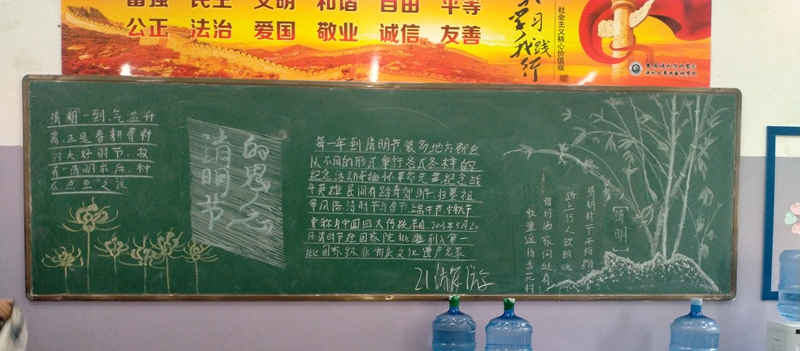 富强 民主 文明 和谐 自由 平等
公正 法治 爱国 敬业 诚信 友善
学习践行
社会主义核心价值观
清明一到,气温升
高,正是春耕春种
的大好时节,故
有"清明前后,种
瓜点豆"之说
清明节
的思念
每一年到清明节很多地方都会
从不同的形式举行各式各样的
纪念活动来缅怀革命先烈纪念战
斗英雄民间有踏青郊游、扫墓祖
等风俗清明节与春节、端午节、中秋节
并称为中国四大传统节日2006年5月20
日清明节经国务院批准列入第一
批国家级非物质文化遗产名录
清明
清明时节雨纷纷
路上行人欲断魂
借问酒家何处有
牧童遥指杏花村